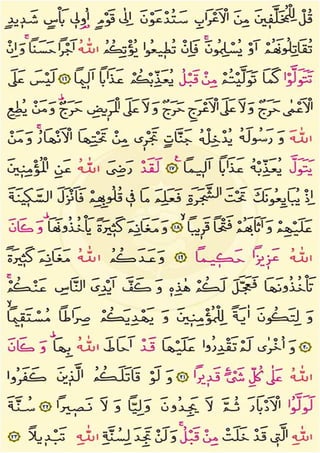 قُلْ لِلْمُخَلَّفِينَ مِنَ الْاَعْرَابِ سَتُدْعَوْنَ اِلٰى قَوْمٍ اُولِي بَأْسٍ شَدِيدٍ
تُقَاتِلُونَهُمْ اَوْ يُسْلِمُونَۚ فَاِنْ تُطِيعُوا يُؤْتِكُمُ اللّٰهُ اَجْرًا حَسَنًاۚ وَاِنْ
تَتَوَلَّوْا كَمَا تَوَلَّيْتُمْ مِنْ قَبْلُ يُعَذِّبْكُمْ عَذَابًا اَلِيمًا ﴿١٦﴾ لَيْسَ عَلَى
الْاَعْمٰى حَرَجٌ وَلَا عَلَى الْاَعْرَجِ حَرَجٌ وَلَا عَلَى الْمَرِيضِ حَرَجٌۜ وَمَنْ يُطِعِ
اللّٰهَ وَرَسُولَهُ يُدْخِلْهُ جَنَّاتٍ تَجْرِي مِنْ تَحْتِهَا الْاَنْهَارُۚ وَمَنْ
يَتَوَلَّ يُعَذِّبْهُ عَذَابًا اَلِيمًا ﴿١٧﴾ لَقَدْ رَضِيَ اللّٰهُ عَنِ الْمُؤْمِنِينَ
اِذْ يُبَايِعُونَكَ تَحْتَ الشَّجَرَةِ فَعَلِمَ مَا فِي قُلُوبِهِمْ فَاَنْزَلَ السَّكِينَةَ
عَلَيْهِمْ وَاَثَابَهُمْ فَتْحًا قَرِيبًا ﴿١٨﴾ وَمَغَانِمَ كَثِيرَةً يَأْخُذُونَهَاۜ وَكَانَ
اللّٰهُ عَزِيزًا حَكِيمًا ﴿١٩﴾ وَعَدَكُمُ اللّٰهُ مَغَانِمَ كَثِيرَةً
تَأْخُذُونَهَا فَعَجَّلَ لَكُمْ هٰذِهِ وَكَفَّ اَيْدِيَ النَّاسِ عَنْكُمْۚ
وَلِتَكُونَ اٰيَةً لِلْمُؤْمِنِينَ وَيَهْدِيَكُمْ صِرَاطًا مُسْتَقِيمًا
﴿٢٠﴾ وَاُخْرٰى لَمْ تَقْدِرُوا عَلَيْهَا قَدْ اَحَاطَ اللّٰهُ بِهَاۜ وَكَانَ
اللّٰهُ عَلٰى كُلِّ شَيْءٍ قَدِيرًا ﴿٢١﴾ وَلَوْ قَاتَلَكُمُ الَّذِينَ كَفَرُوا
لَوَلَّوُا الْاَدْبَارَ ثُمَّ لَا يَجِدُونَ وَلِيًّا وَلَا نَصِيرًا ﴿٢٢﴾ سُنَّةَ
اللّٰهِ الَّتِي قَدْ خَلَتْ مِنْ قَبْلُۚ وَلَنْ تَجِدَ لِسُنَّةِ اللّٰهِ تَبْدِيلًا ﴿٢٣﴾